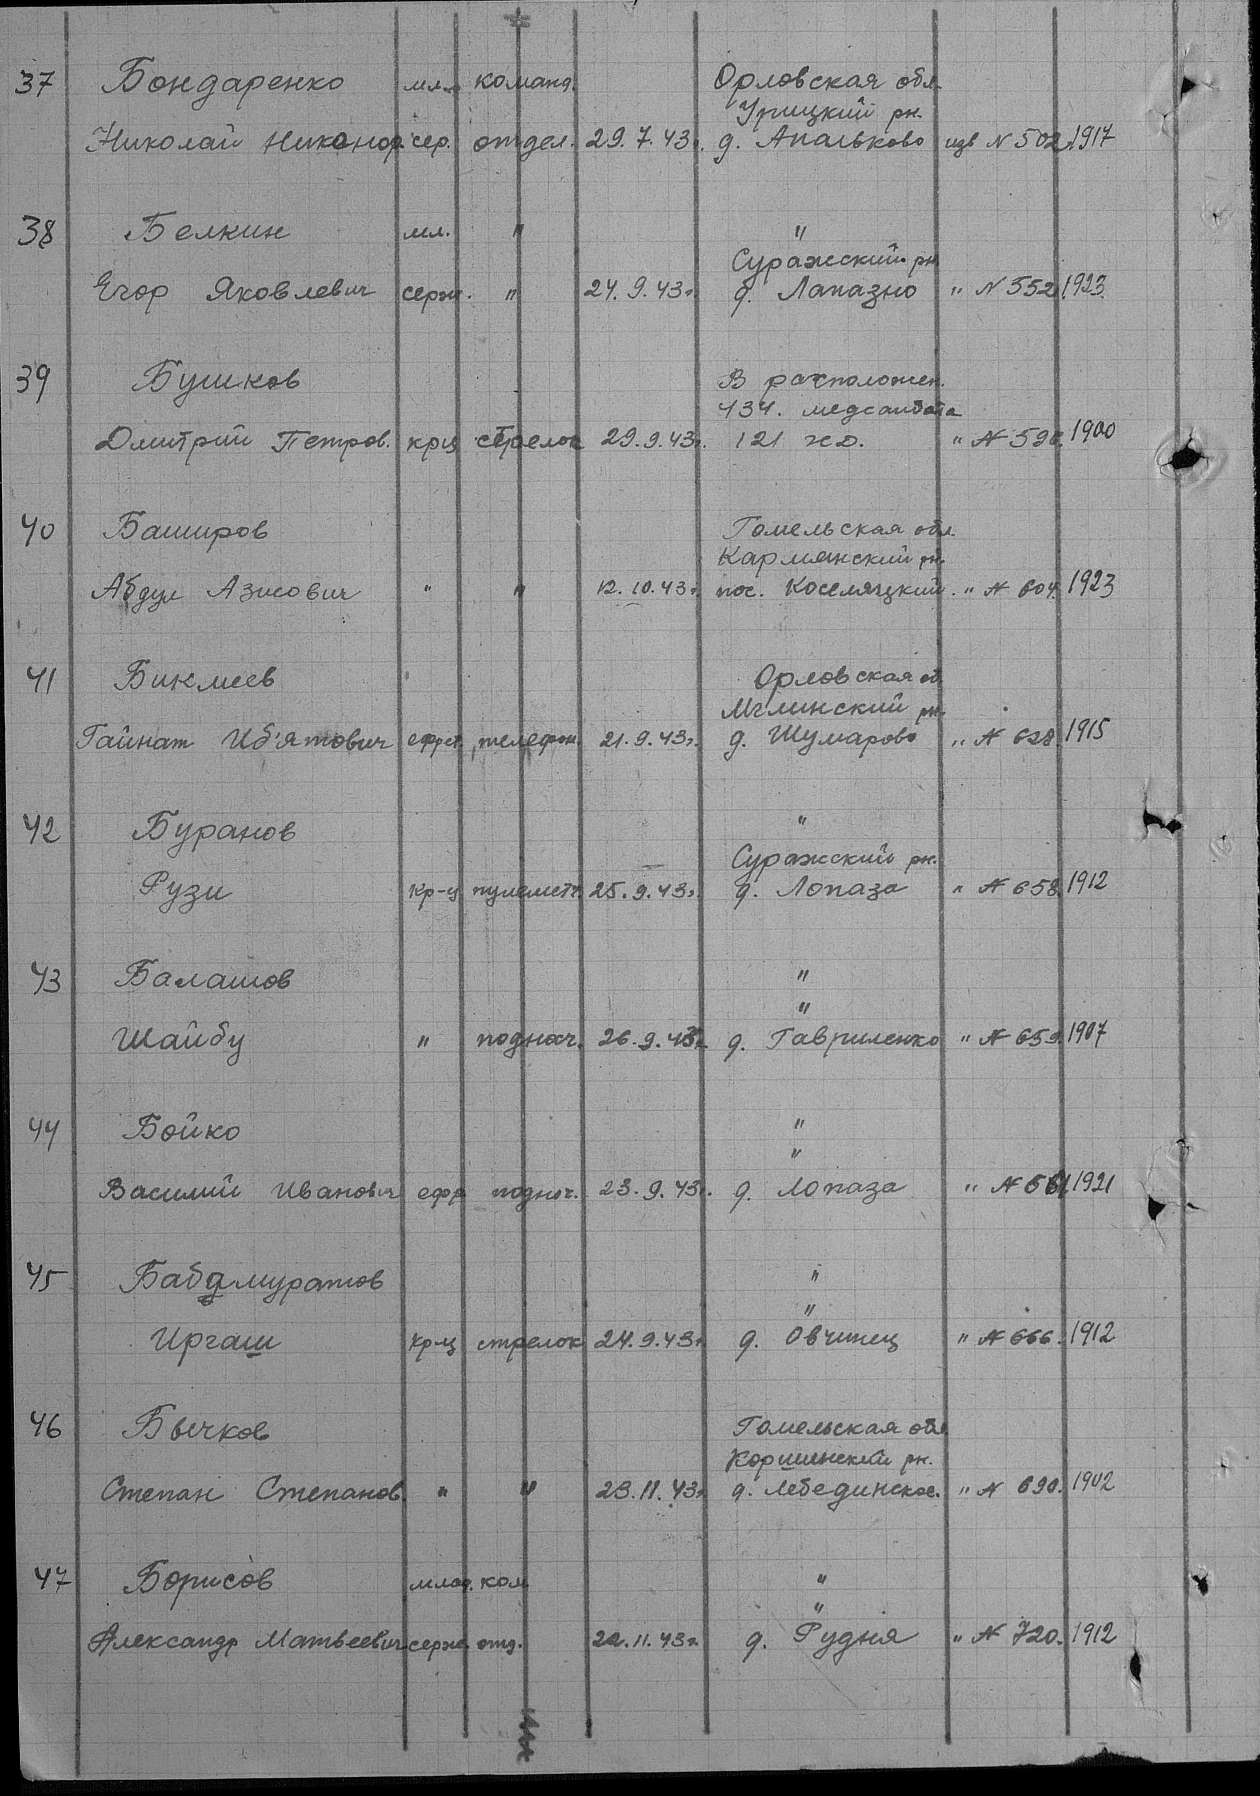 37 Бондаренко мл. команд. Орловская обл.
Урицкий рн.
Николай Никонор. сер. отдел. 29.7.43г. д. Апальково изв № 502. 1917
38 Белкин мл. " "
Суражский рн
Егор Яковлевич серж. " 24.9.43г. д. Лопазно " № 552 1923
39 Бушков В расположен.
134. медсанбата
Дмитрий Петров. крц стрелок 29.9.43г. 121 " № 590. 1900
40 Баширов Гомельская обл.
Кармянский рн.
Абдул Азисович " " 12.10.43г. пос. Коселяцкий. " № 604. 1923
41 Бикмеев Орловская об.
Мглинский рн.
Гайнат Иб'ятович ефрет. телефон. 21.9.43г. д. Шумарово " № 628. 1915
42 Буранов "
Суражский рн.
Рузи кр-ц пулеметч. 25.9.43г. д. Лопаза " № 658. 1912
43 Балашов "
"
Шайбу " поднач. 26.9.43г. д. Гавриленко " № 659. 1907
44 Бойко "
"
Василий Иванович ефр. поднч. 23.9.43г. д. Лопаза " № 661. 1921
45 Бабамуратов "
"
Иргаш кр-ц стрелок 24.9.43г. д. Овчинец " № 666. 1912
46 Бычков Гомельская обл
Кормянский рн.
Степан Степанов. " " 23.11.43г. д. Лебединское. " № 690. 1902
47 Борисов млад. ком "
"
Александр Матвеевич серж. отд. 22.11.43г. д. Рудня " № 720. 1912